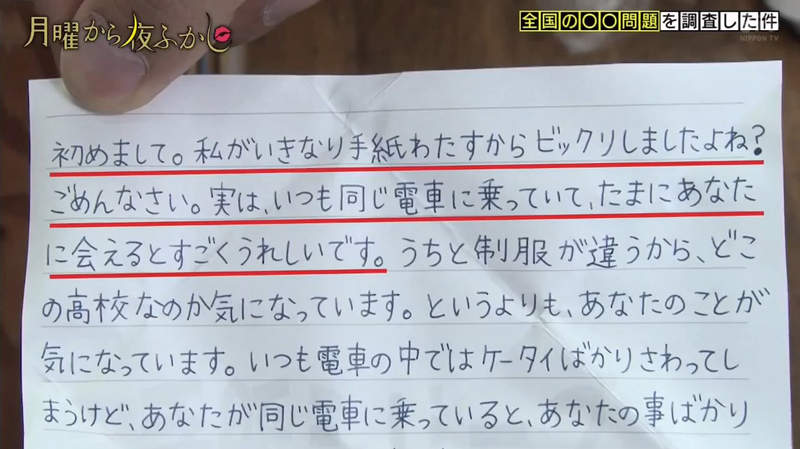 月曜から夜ふかし
全国の〇〇問題を調査した件
NIPPON TV
初めまして。私がいきなり手紙わたすからビックリしましたよね?
ごめんなさい。実は、いつも同じ電車に乗っていて、たまにあなた
に会えるとすごくうれしいです。うちと制服が違うから、どこ
の高校なのか気になっています。というよりも、あなたのことが
気になっています。いつも電車の中ではケータイばかりさわってし
まうけど、あなたが同じ電車に乗っていると、あなたの事ばかり